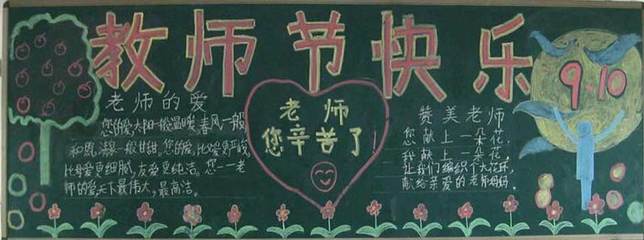 教师节快乐
9.10
老师的爱
您的爱,太阳一般温暖,春风一般
和煦,清泉一般甘甜,您的爱,比父爱更严峻,
比母爱更细腻,友爱更纯洁。您—老
师的爱天下最伟大,最高洁。
老师
您辛苦了
赞美老师
您献上一朵花,
我献上一朵花,
让我们编织个大花球,
献给亲爱的老师妈妈